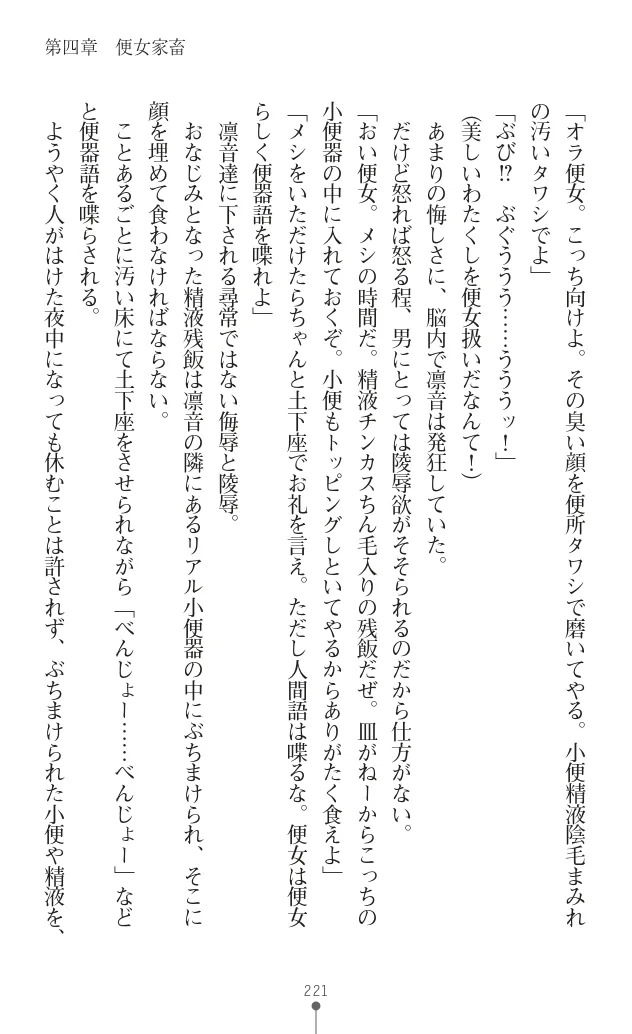 第四章　便女家畜
「オラ便女。こっち向けよ。その臭い顔を便所タワシで磨いてやる。小便精液陰毛まみれ
の汚いタワシでよ」
「ぶび!?　ぶぐううう……うううッ！」
(美しいわたくしを便女扱いだなんて！)
あまりの悔しさに、脳内で凛音は発狂していた。
だけど怒れば怒る程、男にとっては陵辱欲がそそられるのだから仕方がない。
「おい便女。メシの時間だ。精液チンカスちん毛入りの残飯だぜ。皿がねーからこっちの
小便器の中に入れておくぞ。小便もトッピングしといてやるからありがたく食えよ」
「メシをいただけたらちゃんと土下座でお礼を言え。ただし人間語は喋るな。便女は便女
らしく便器語を喋れよ」
凛音達に下される尋常ではない侮辱と陵辱。
おなじみとなった精液残飯は凛音の隣にあるリアル小便器の中にぶちまけられ、そこに
顔を埋めて食わなければならない。
ことあるごとに汚い床にて土下座をさせられながら「べんじょー……べんじょー」など
と便器語を喋らされる。
ようやく人がはけた夜中になっても休むことは許されず、ぶちまけられた小便や精液を、
221